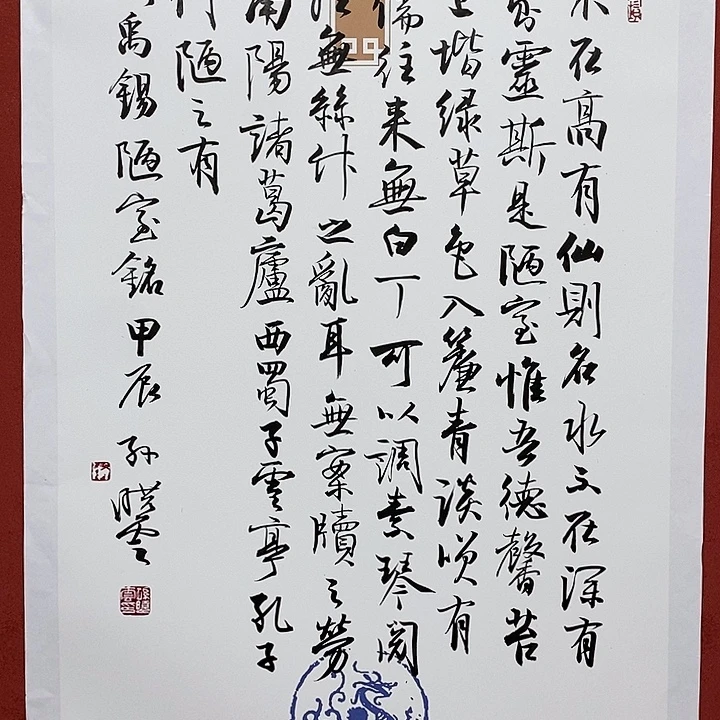 不在高有仙則名水不在深有
則靈斯是陋室惟吾德馨苔
上階綠草色入簾青談笑有
儒往來無白丁可以調素琴閱
經無絲竹之亂耳無案牘之勞
南陽諸葛廬西蜀子雲亭孔子
何陋之有
禹錫陋室銘甲辰孫曉雲